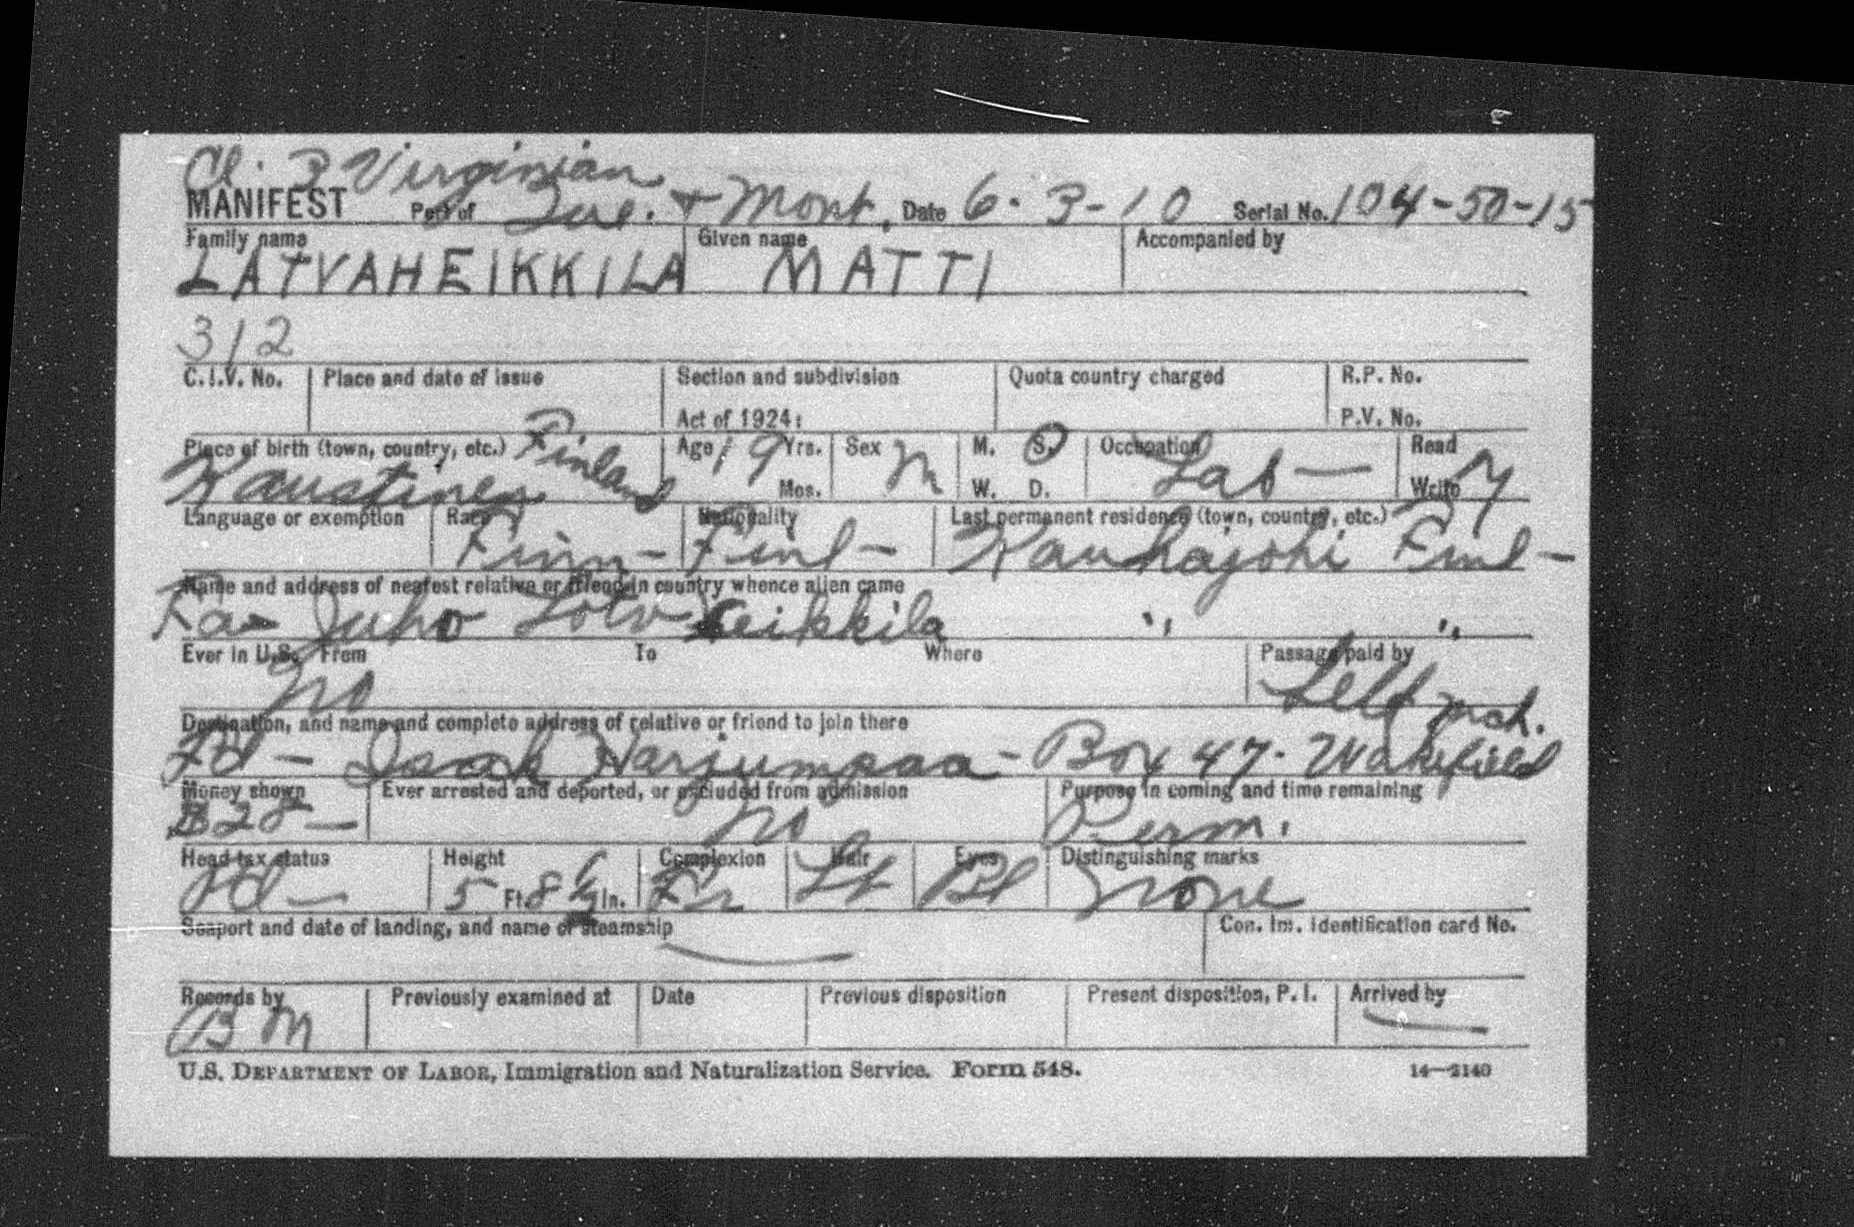 Cl. 3 Virginian
MANIFEST Port of Que. + Mont. Date 6-3-10 Serial No. 104-50-15
Family name Given name Accompanied by
LATVAHEIKKILA MATTI
312
C.I.V. No. Place and date of issue Section and subdivision Quota country charged R.P. No.
Act of 1924: P.V. No.
Place of birth (town, country, etc.) Finland Age 19 Yrs. Sex M M. S. Occupation Lab — Read
Kaustinen Mos. W. D. Write y
Language or exemption Race Nationality Last permanent residence (town, country, etc.)
Finn- Finl- Kauhajoki Finl-
Name and address of nearest relative or friend in country whence alien came
Fa- Juho Latv Heikkila " "
Ever in U.S. From To Where Passage paid by
No Self
Destination, and name and complete address of relative or friend to join there Mch.
Fd - Isaak Harjumpaa - Box 47- Wakefield
Money shown Ever arrested and deported, or excluded from admission Purpose in coming and time remaining
$28- No Perm.
Head tax status Height Complexion Hair Eyes Distinguishing marks
Pd- 5 Ft. 8 In. Fr Lt Bl None
Seaport and date of landing, and name of steamship Con. Im. Identification card No.
Records by Previously examined at Date Previous disposition Present disposition, P. I. Arrived by
BM
U.S. DEPARTMENT OF LABOR, Immigration and Naturalization Service. Form 548. 14—2140